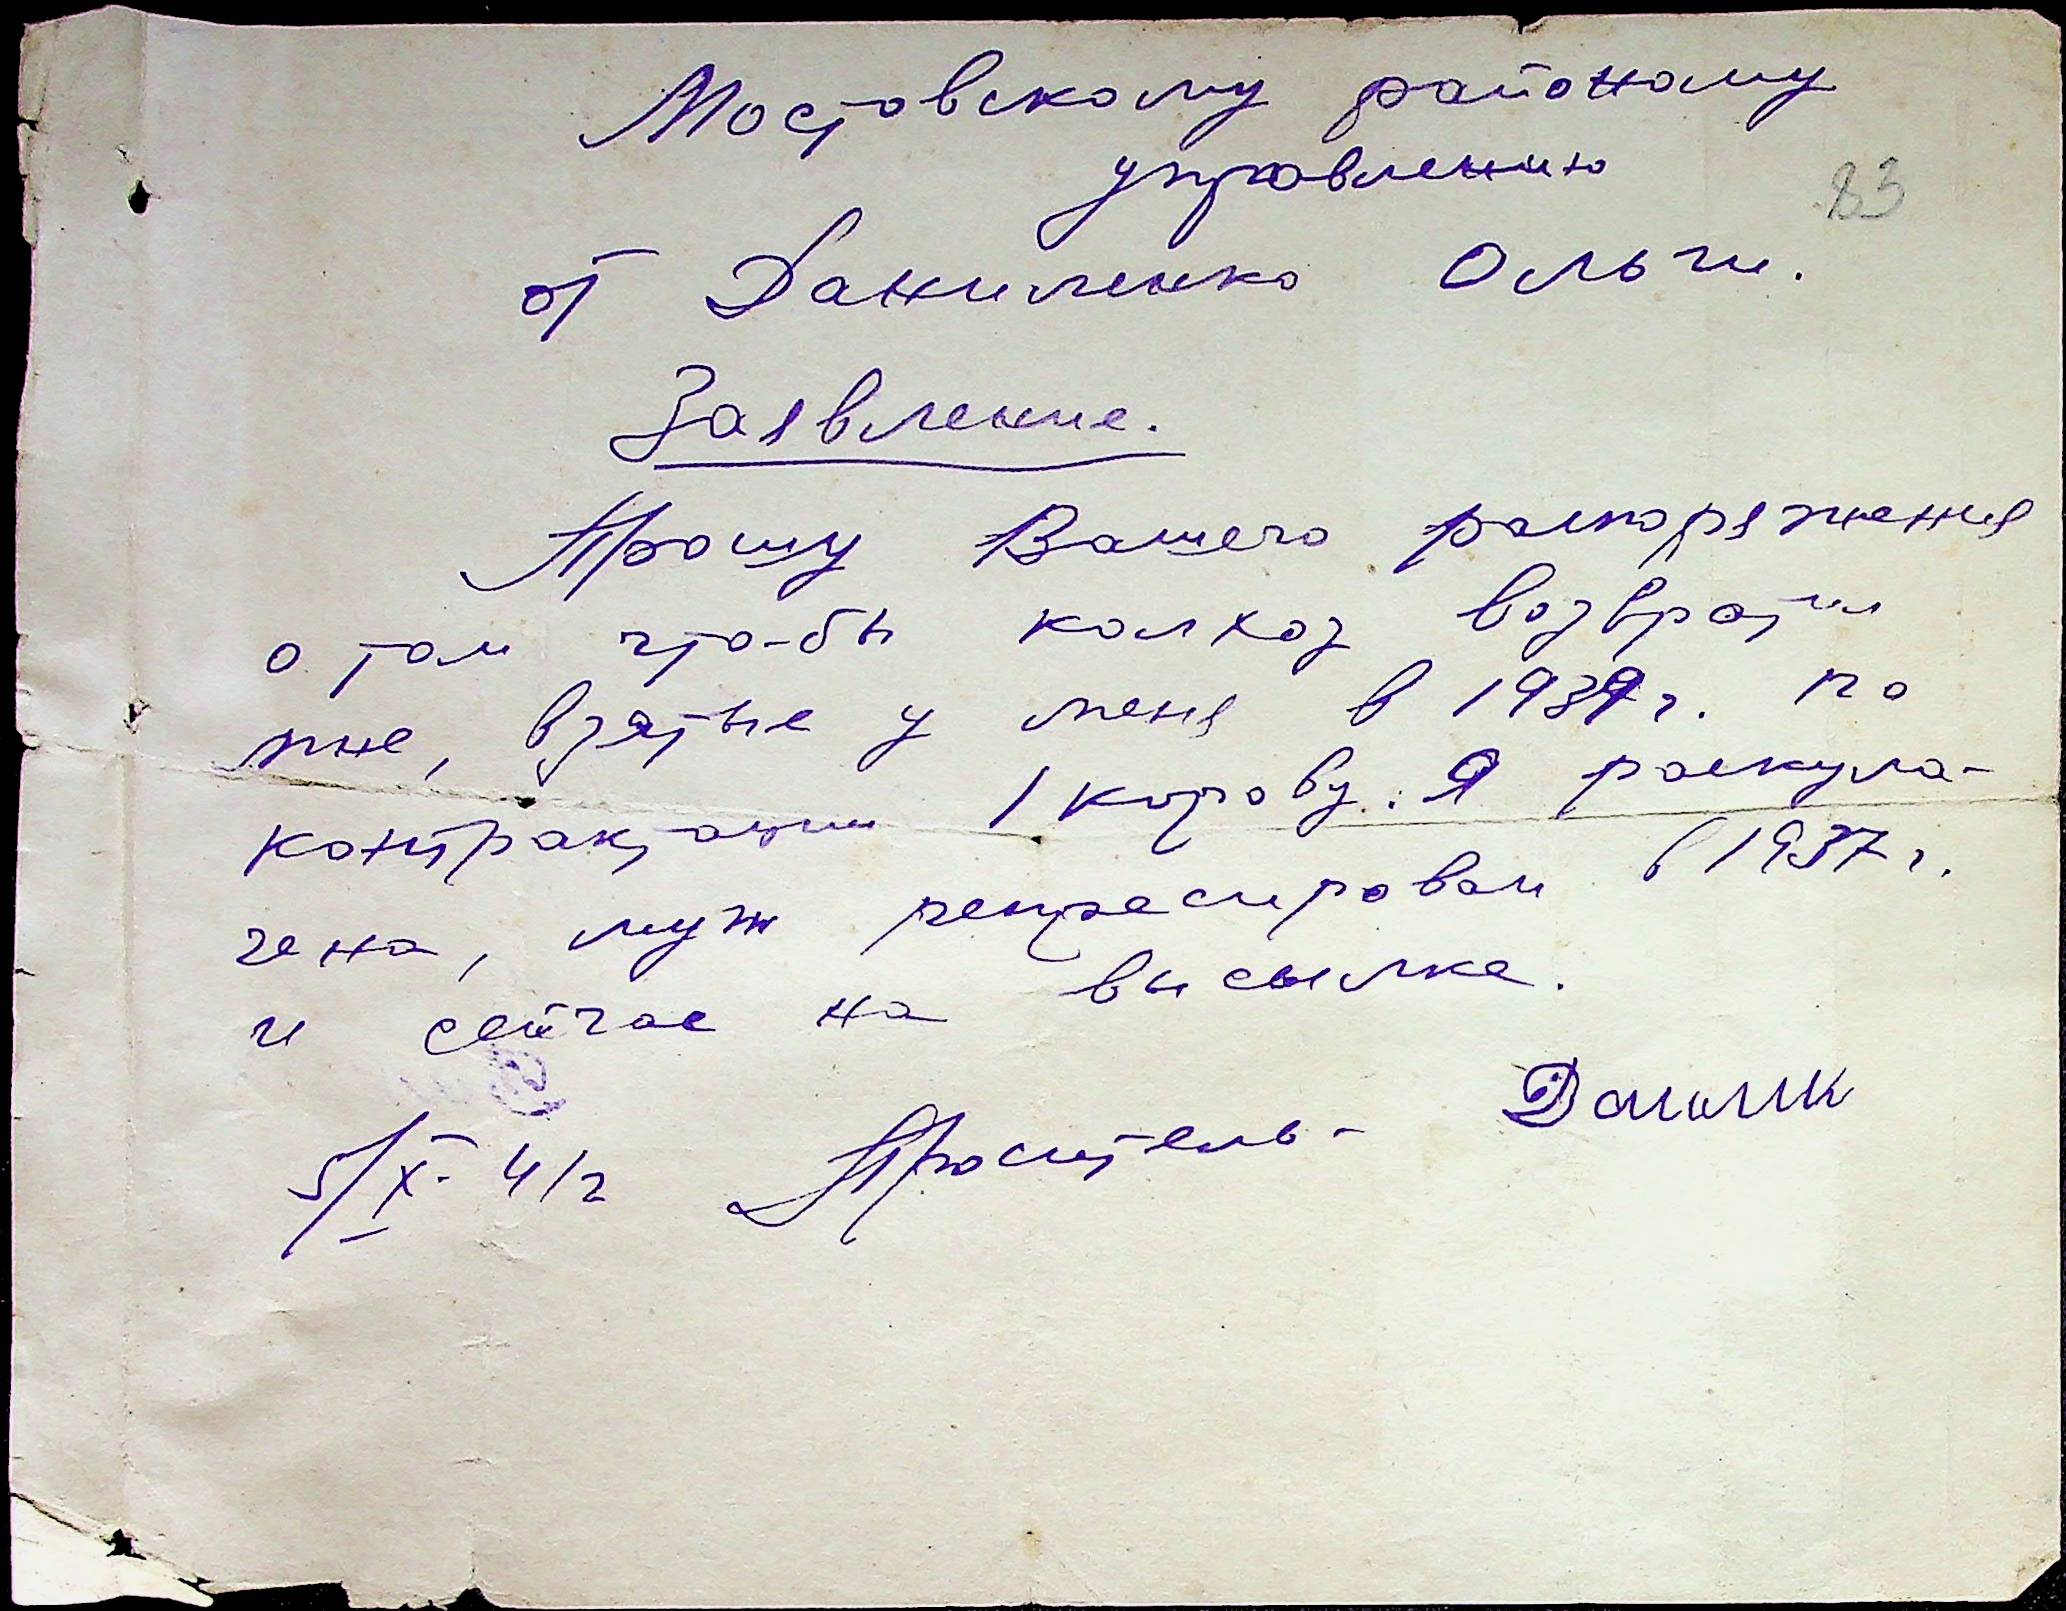 Мостовскому районому
управлению
83
от Даниленко Ольги.
Заявление.
Прошу Вашего распоряжения
о том что-бы колхоз возвратил
мне, взятые у меня в 1939г. по
контрактации 1 корову. Я раскула-
чена, муж репресирован в 1937г.
и сейчас на высылке.
5/X- 41г Проситель- Данилк